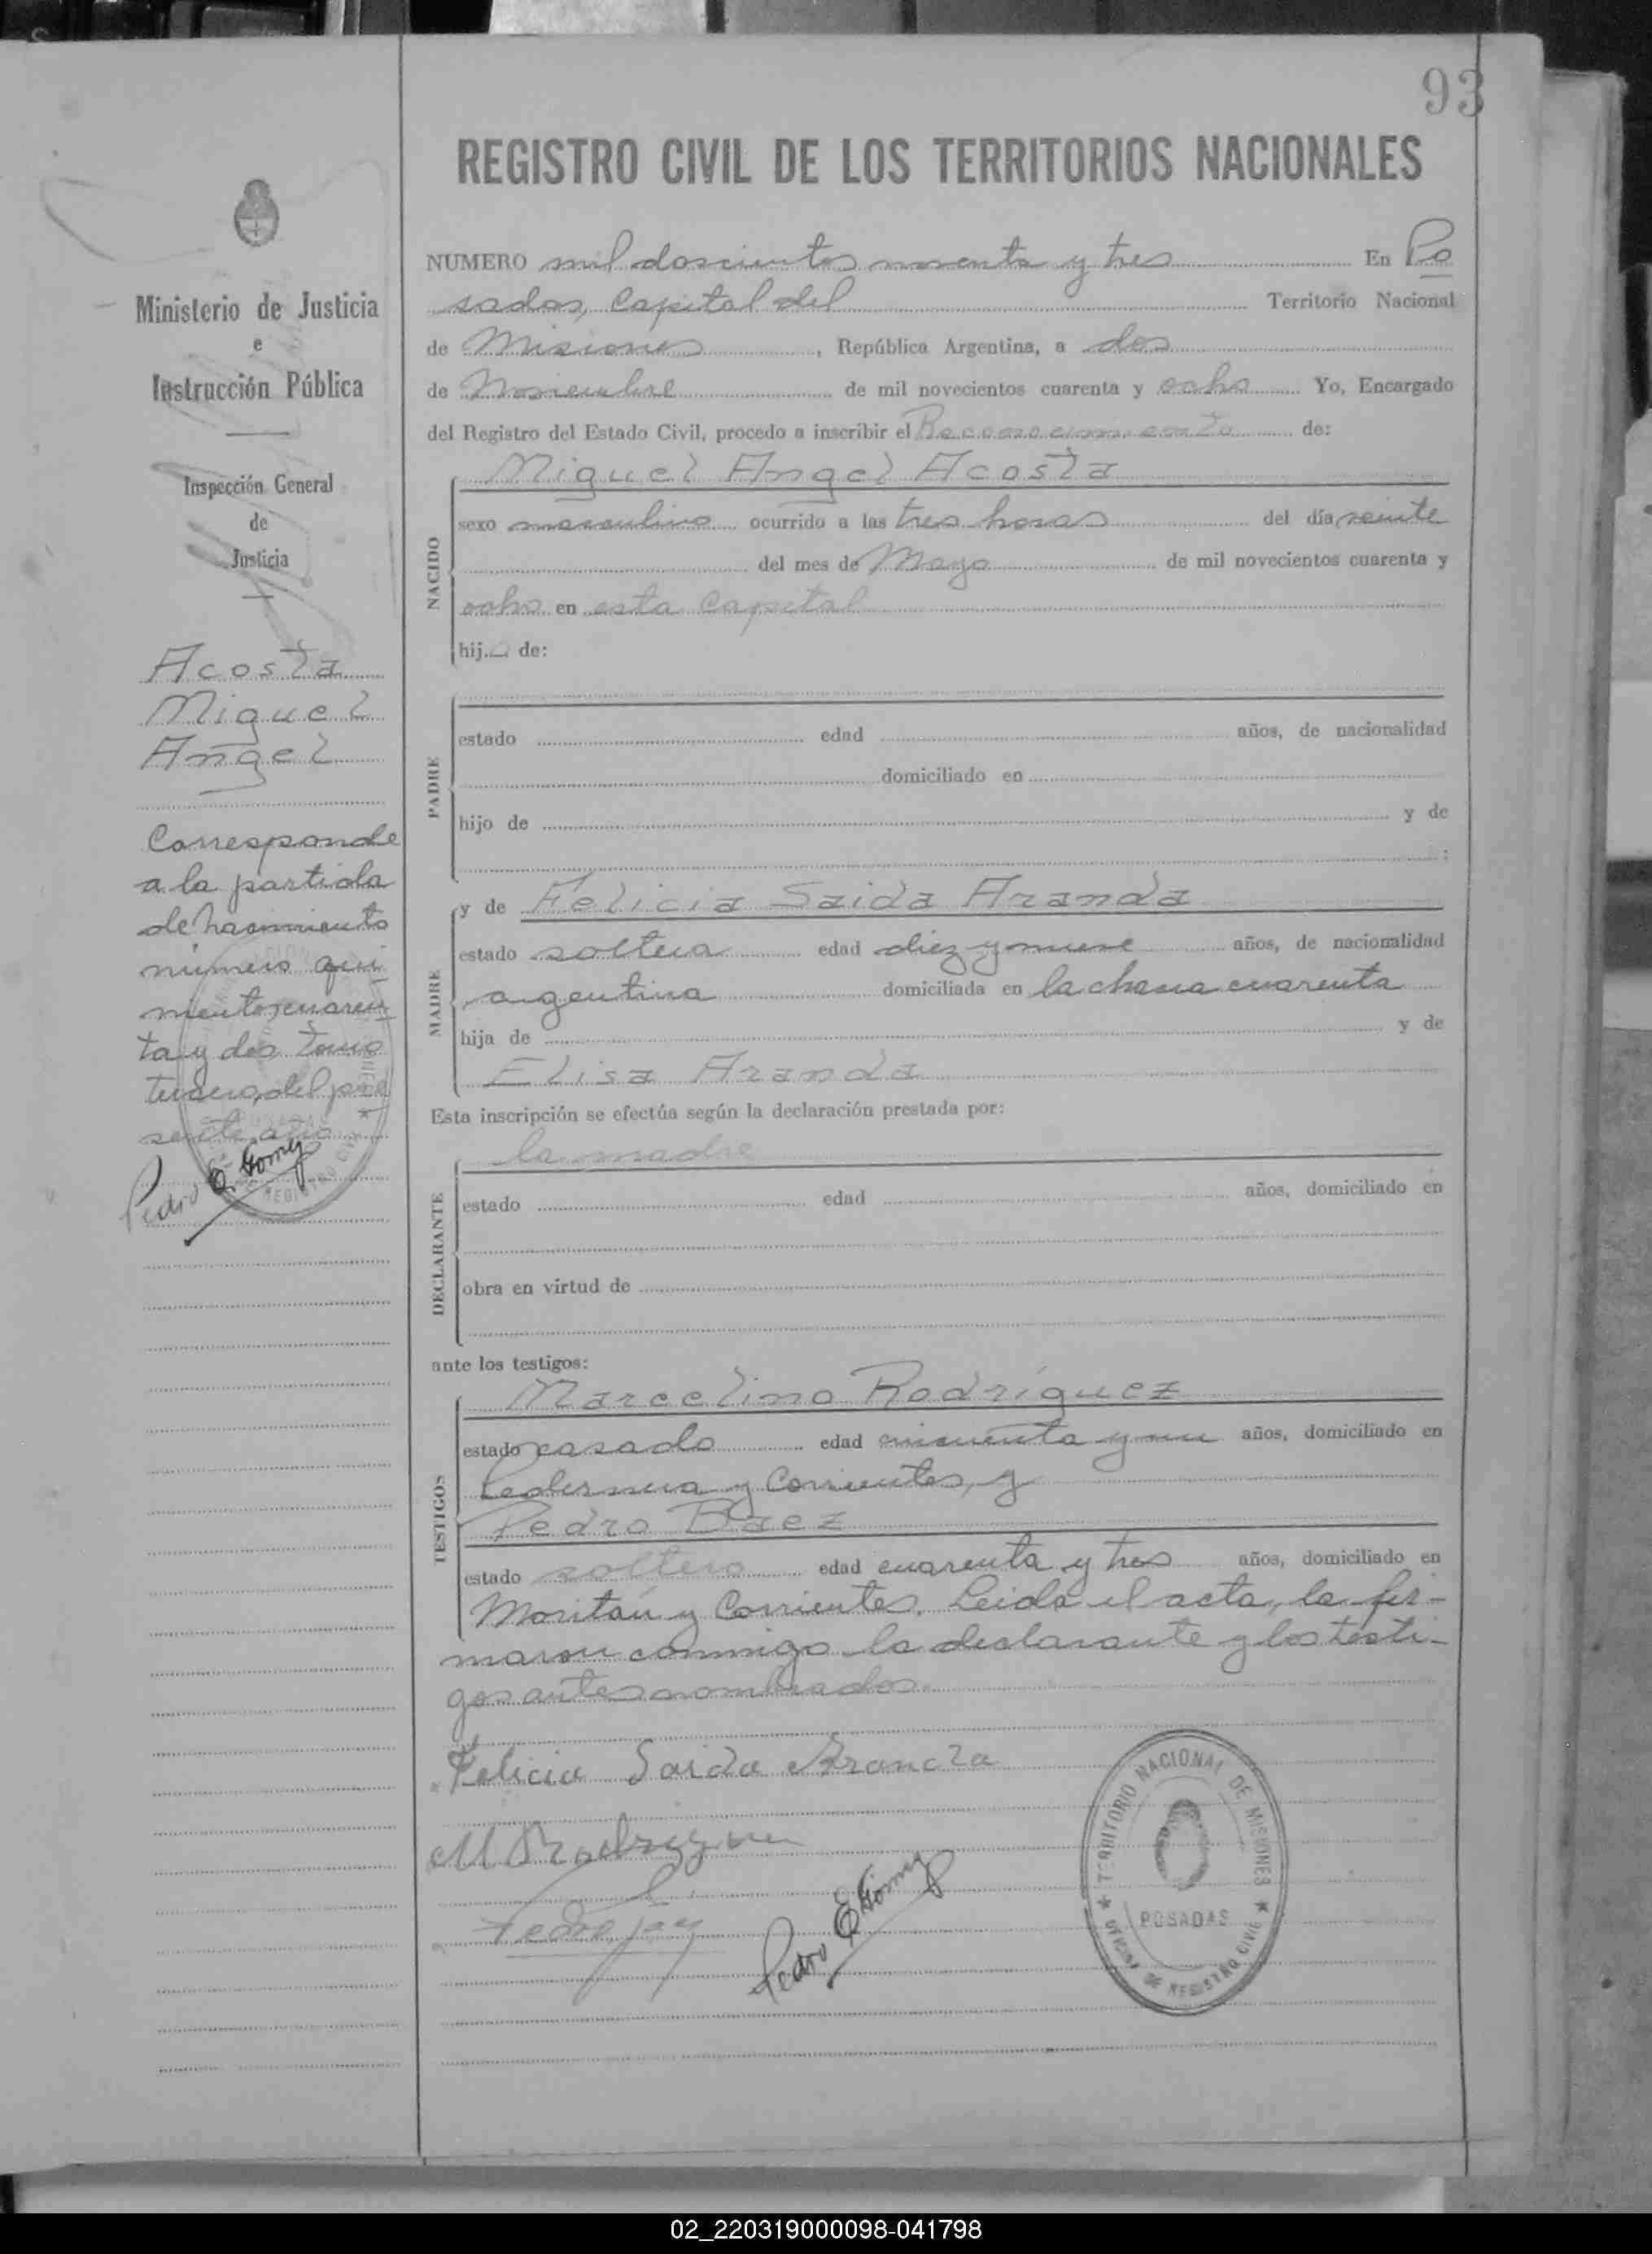 93
REGISTRO CIVIL DE LOS TERRITORIOS NACIONALES
Ministerio de Justicia
e
Instrucción Pública
Inspección General
de
Justicia
Acosta
Miguel
Angel
Corresponde
a la partida
de nacimiento
número qui
nientos cuaren
ta y dos tomo
tercero, del pre
sente año
Pedro E. Gomez
NUMERO mil doscientos noventa y tres En Po
sadas, Capital del Territorio Nacional
de Misiones, República Argentina, a dos
de Noviembre de mil novecientos cuarenta y ocho Yo, Encargado
del Registro del Estado Civil, procedo a inscribir el Reconocimiento de:
Miguel Angel Acosta
NACIDO
sexo masculino ocurrido a las tres horas del día veinte
del mes de Mayo de mil novecientos cuarenta y
ocho en esta Capital
hijo de:
PADRE
estado edad años, de nacionalidad
domiciliado en
hijo de y de
MADRE
y de Felicia Saida Aranda
estado soltera edad diez y nueve años, de nacionalidad
argentina domiciliada en la chacra cuarenta
hija de y de
Elisa Aranda
Esta inscripción se efectúa según la declaración prestada por:
la madre
DECLARANTE
estado edad años, domiciliado en
obra en virtud de
ante los testigos:
TESTIGOS
Marcelino Rodríguez
estado casado edad cincuenta y un años, domiciliado en
y Corrientes, y
Pedro Baez
estado soltero edad cuarenta y tres años, domiciliado en
y Corrientes. Leida el acta, la fir-
maron conmigo la declarante y los testi-
gos antes nombrados.
Felicia Saida Aranda
M Rodriguez
Pedro E Gómez
TERRITORIO NACIONAL DE MISIONES
POSADAS
OFICINA DE REGISTRO CIVIL
02_220319000098-041798